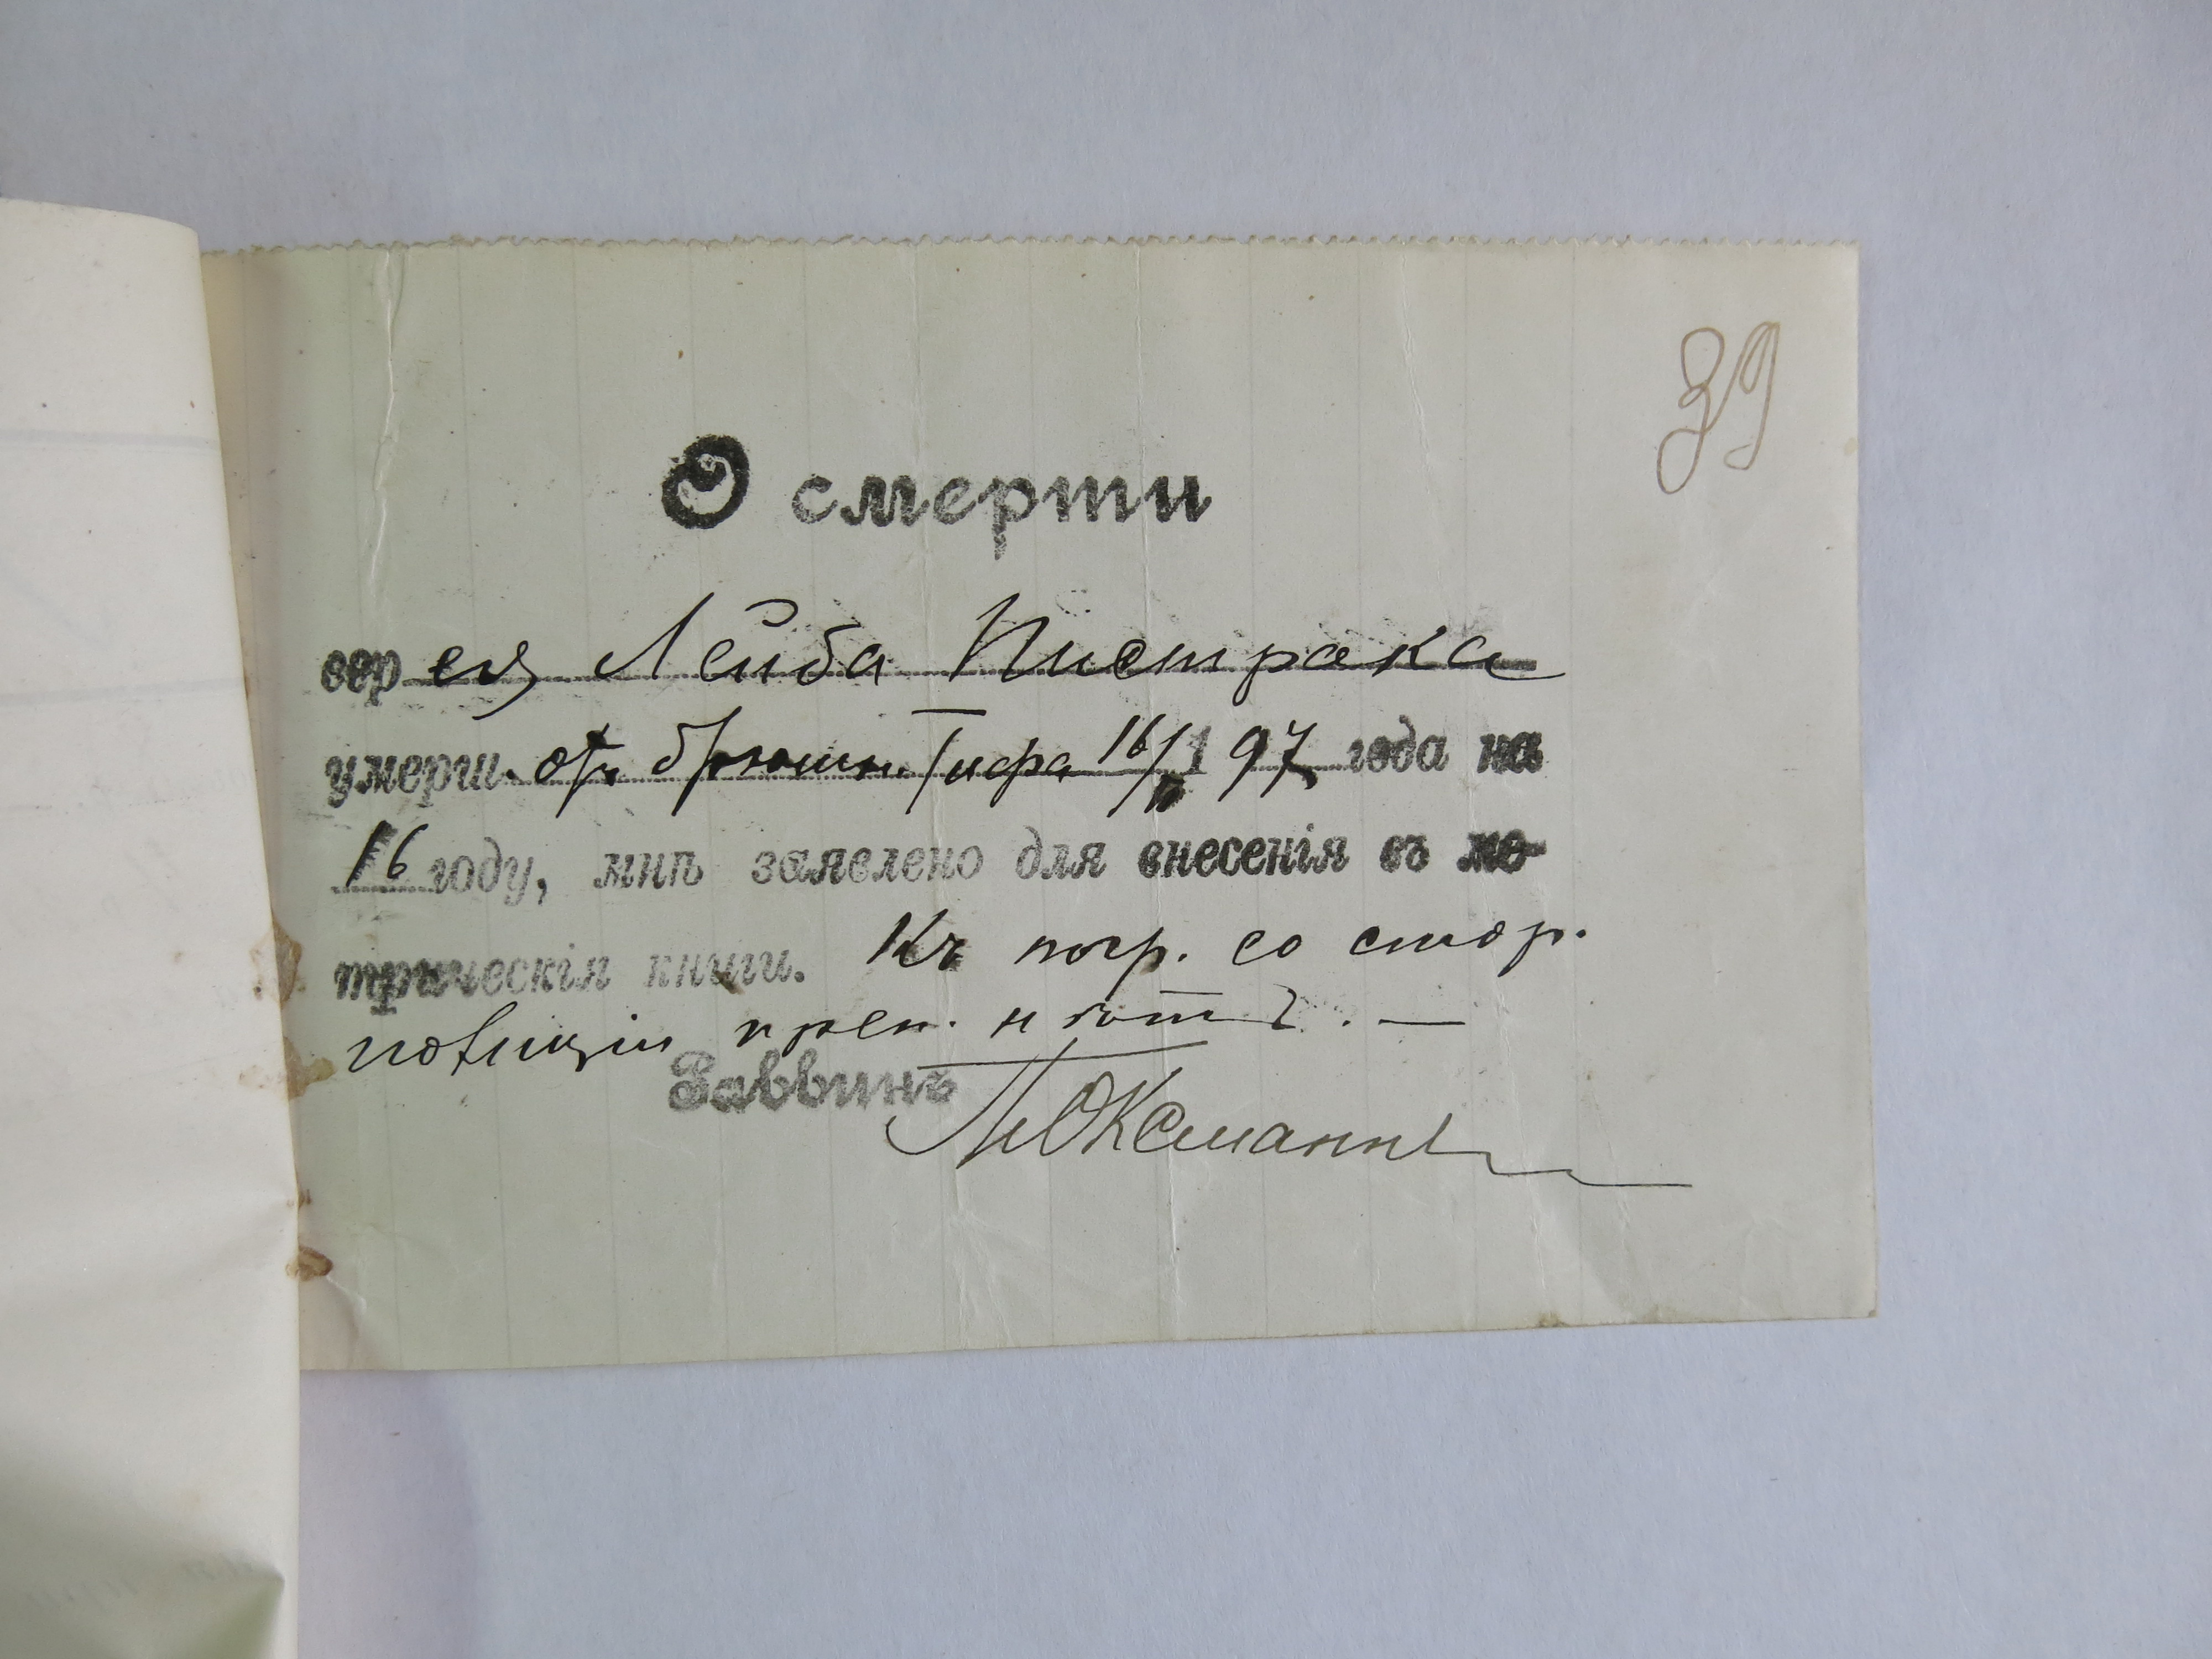 39
О смерти
евр ея Лейба Пистрака
умерш. отъ брюшн. Тифа 16/I 97 года на
16 году, мнѣ заявлено для внесенія въ ме-
трическія книги. Къ погр. со стор.
полиціи преп. нѣтъ. —
Раввинъ
Оксманъ